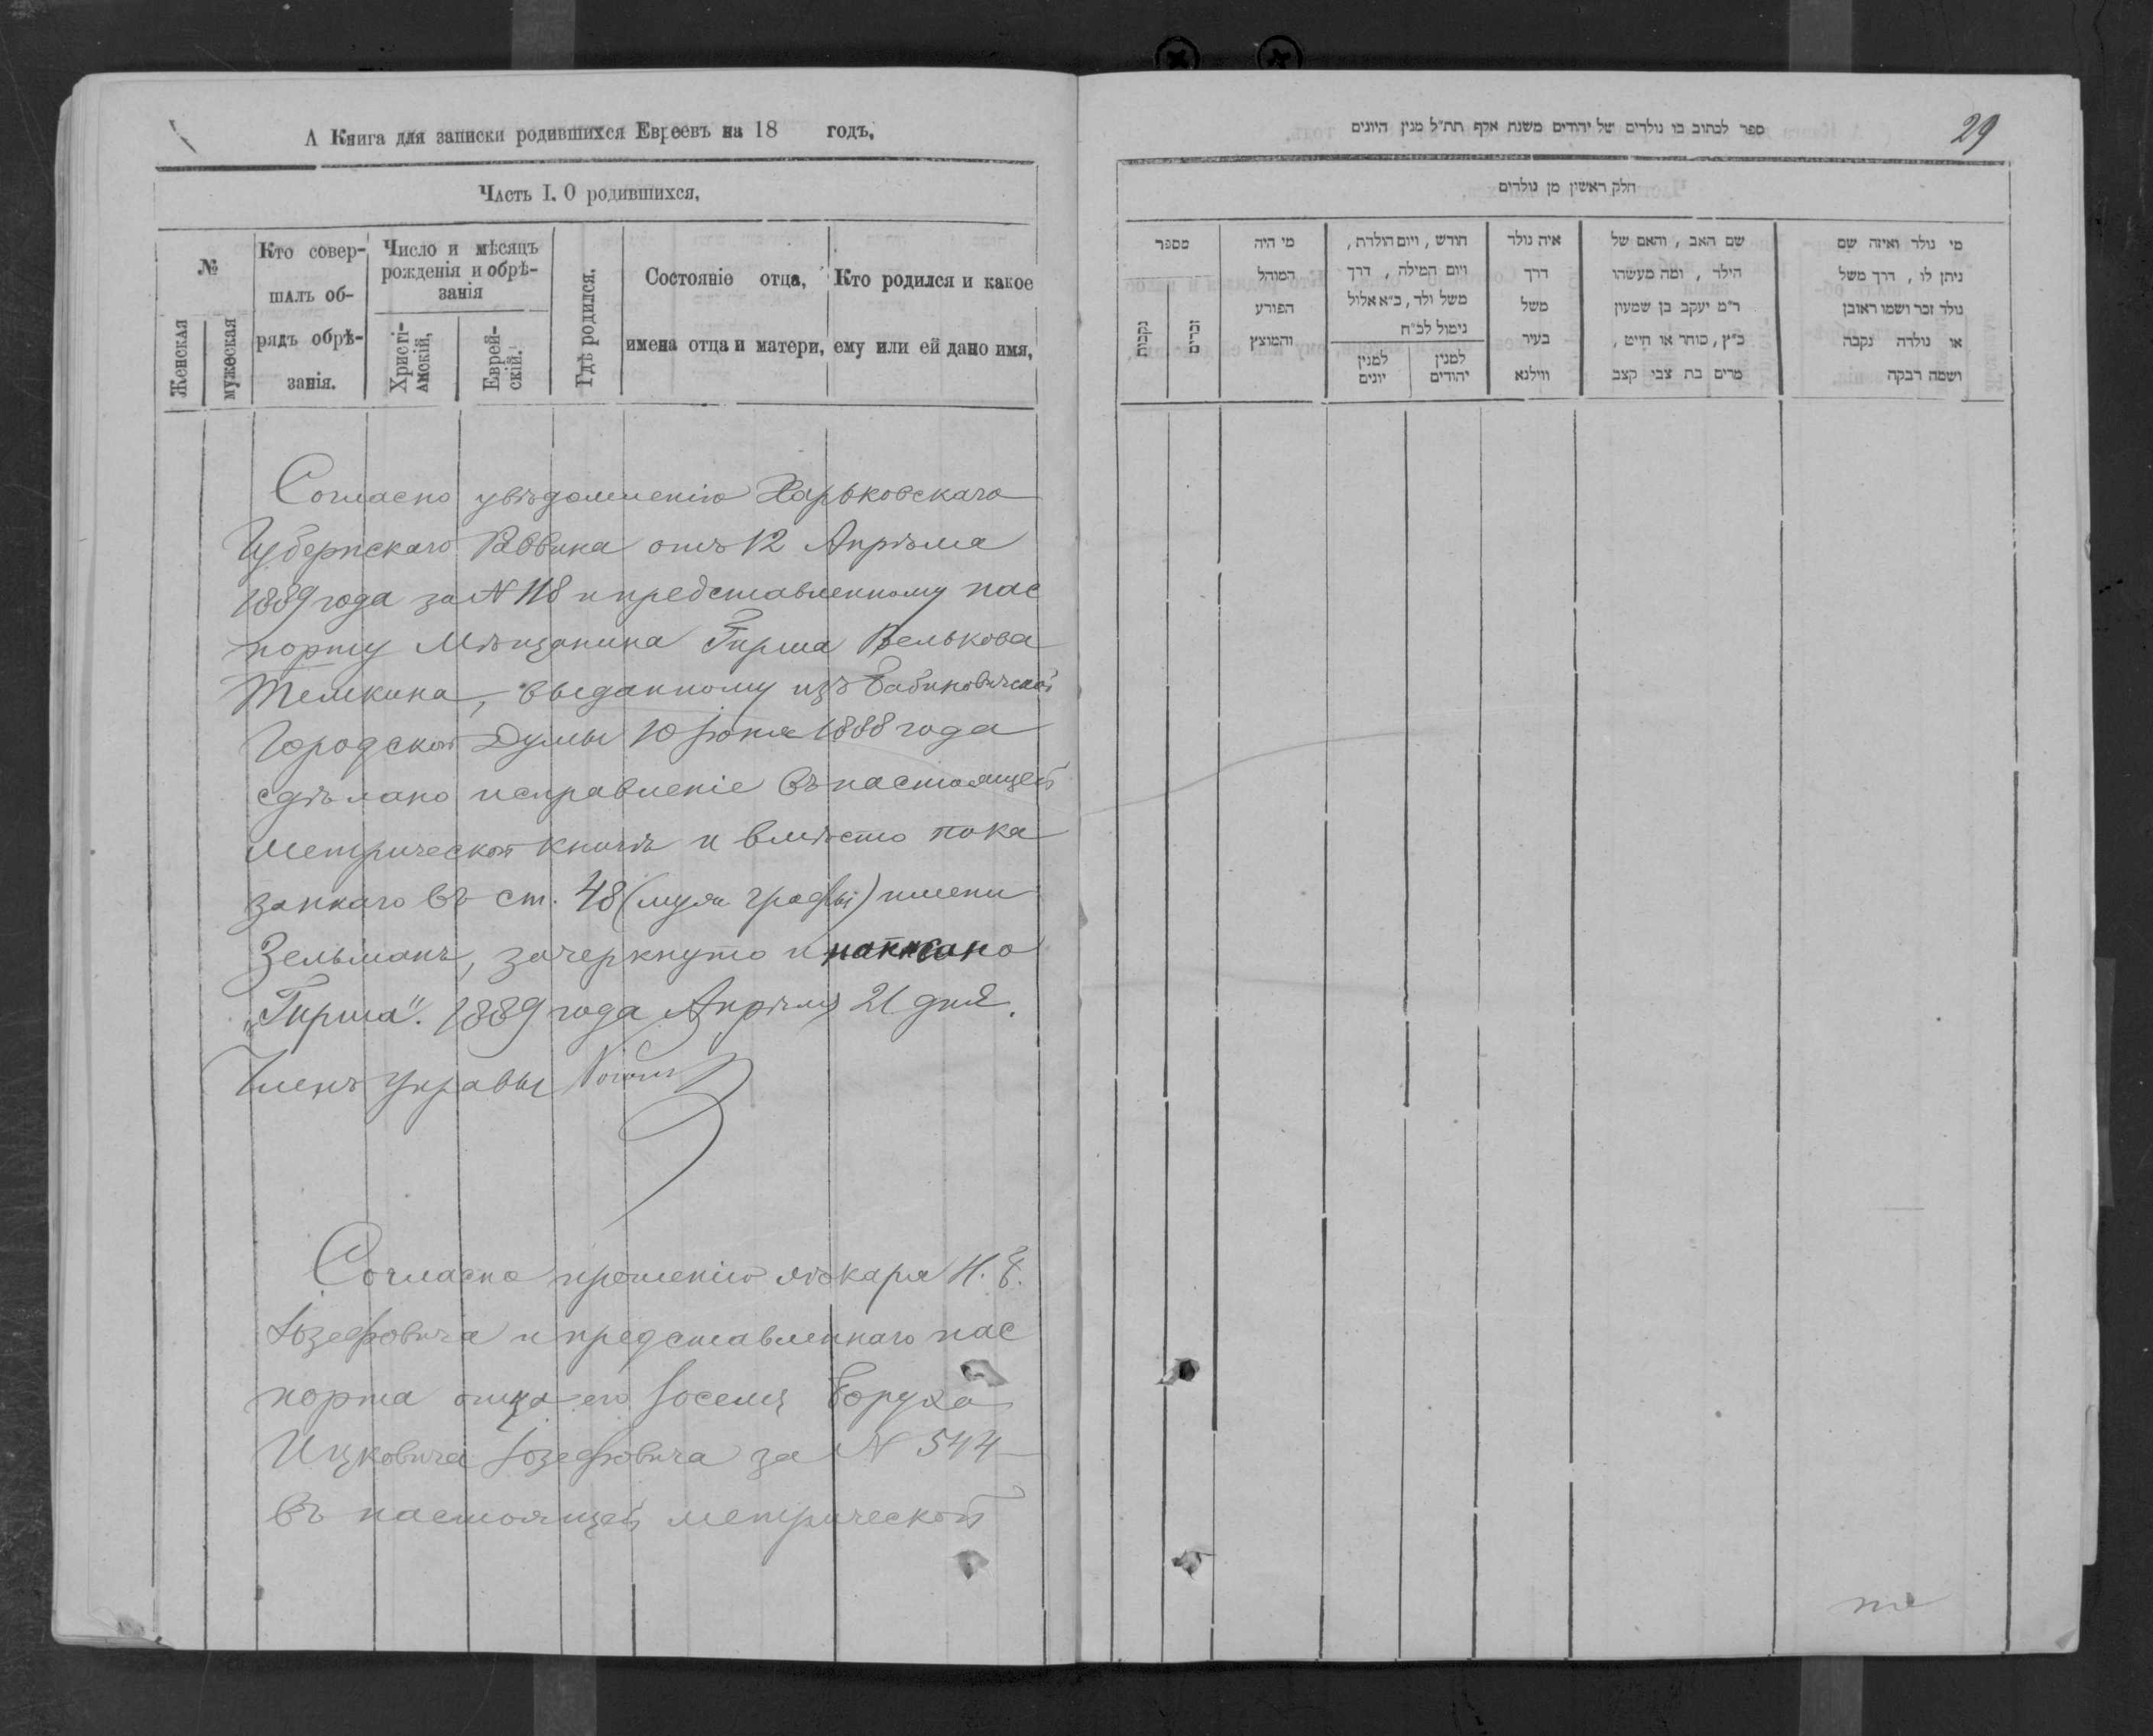 А Книга для записки родившихся Евреевъ на 18 годъ,
Часть I. О родившихся,
№
Женская
мужеская
Кто совер-
шалъ об-
рядъ обрѣ-
занія.
Число и мѣсяцъ
рожденія и обрѣ-
занія
Христі-
анскій,
Еврей-
скій.
Гдѣ родился.
Состояніе отца,
имена отца и матери,
Кто родился и какое
ему или ей дано имя,
Согласно увѣдомленію Харьковскаго
Губернскаго Раввина отъ 12 Апрѣля
1889 года за № 118 и представленному пас
порту Мѣщанина Гирша Велькова
Темкина, выданному изъ Бабиновичской
Городской Думы 10 Іюня 1888 года
сдѣлано исправленіе въ настоящей
метрической книгѣ и вмѣсто пока
заннаго въ ст. 48 (муж графы) имени
Зельманъ, зачеркнуто и написано
„Гирша". 1889 года Апрѣля 21 дня.
Членъ Управы
Согласно прошенію лѣкаря И. Б.
Іозефовича и представленнаго пас
порта отца его Іоселя Боруха
Ицковича Іозефовича за № 544
въ настоящей метрической
ספר לכתוב בו נולדים של יהודים משנת אלף תת״ל מנין היונים
29
חלק ראשין מן נולדים
מספר
נקבות
זכרים
מי היה
המוהל
הפורע
והמוצץ
חודש , ויום הולדת ,
ויום המילה , דרך
משל ולד , כ״א אלול
נימול לכ״ח
למנין
יונים
למנין
יהודים
איה נולד
דרך
משל
בעיר
ווילנא
שם האב , והאם של
הילד , ומה מעשהו
ר״מ יעקב בן שמעון
כ״ץ , סוחר או חייט ,
מרים בת צבי קצב
מי נולד ואיזה שם
ניתן לו , דרך משל
נולד זכר ושמו ראובן
או נולדה נקבה
ושמה רבקה